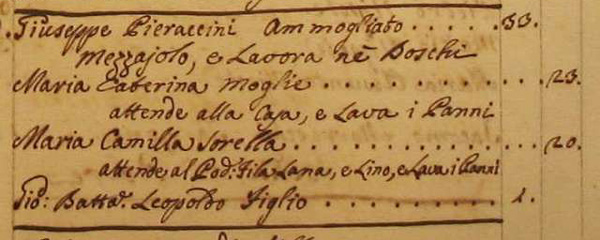 Giuseppe Pieraccini Ammogliato . . . . . . 33.
Mezzajolo, e Lavora nè Boschi
Maria Caterina Moglie . . . . . . . . . . . . 23.
attende alla Casa, e Lava i Panni
Maria Camilla Sorella . . . . . . . . . . . . . 20.
attende al Pod: Fila Lana, e Lino, e Lava i Panni
Gio: Batta. Leopoldo Figlio . . . . . . . . . . 1.